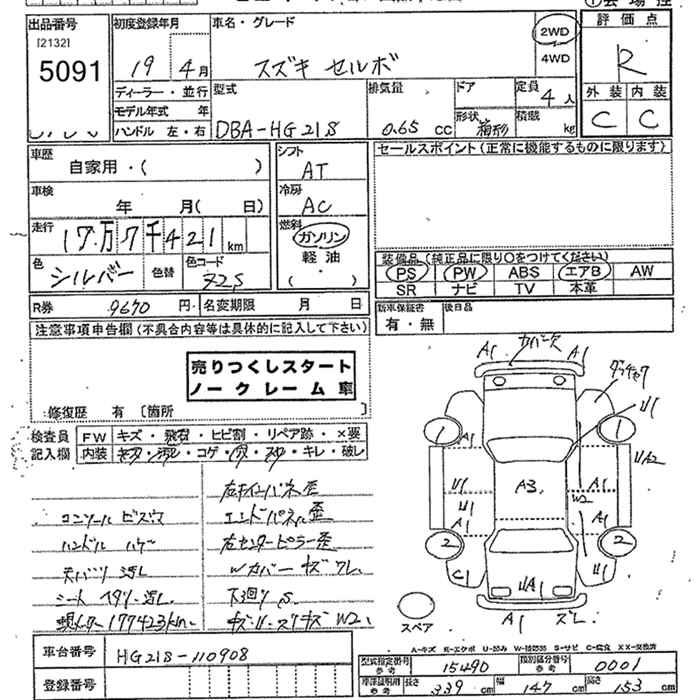 出品番号 初度登録年月 車名・グレード 2WD 評価点
[2132]
5091 19 4月 スズキ セルボ 4WD R
ディーラー・並行 型式 排気量 ドア 定員 4人 外装 内装
モデル年式 年 形状 箱形 積載 kg C C
ハンドル 左・右 DBA-HG21S 0.65 cc
車歴 自家用・( ) シフト AT セールスポイント(正常に機能するものに限ります)
車検 年 月( 日) 冷房 AC
走行 17万7千421km 燃料 ガソリン
軽油
( )
色 シルバー 色替 色コード Z2S
装備品(純正品に限り○をつけてください)
PS PW ABS エアB AW
SR ナビ TV 本革
R券 9670円 名変期限 月 日
新車保証書 有・無 後日品
注意事項申告欄(不具合内容等は具体的に記入して下さい)
売りつくしスタート
ノークレーム車
修復歴 有 [箇所 ]
検査員 FW キズ・飛石・ヒビ割・リペア跡・×要
記入欄 内装 キズ・汚れ・コゲ・穴・スレ・キレ・破レ
エンドパネル歪
コンソール ビスウ
ハンドル ハゲ 右センターピラー歪
天バリ 汚レ Wカバー キズ ワレ
シート ヘタリ・汚レ 下回り S
現メーター 177423km
A1 カバー欠 A1
U1
1 A1 1
U1 A3 W2 UA2
U1
A1 A1
2 2
C1 UA1 U1
A1 ズレ
スペア
A-キズ E-エクボ U-凹み W-補修跡 S-サビ C-腐食 XX-交換済
車台番号 HG21S-110908
型式指定番号 参考 15490 類別区分番号 参考 0001
登録番号
車庫証明用 参考 長さ 339cm 幅 147cm 高さ 153cm